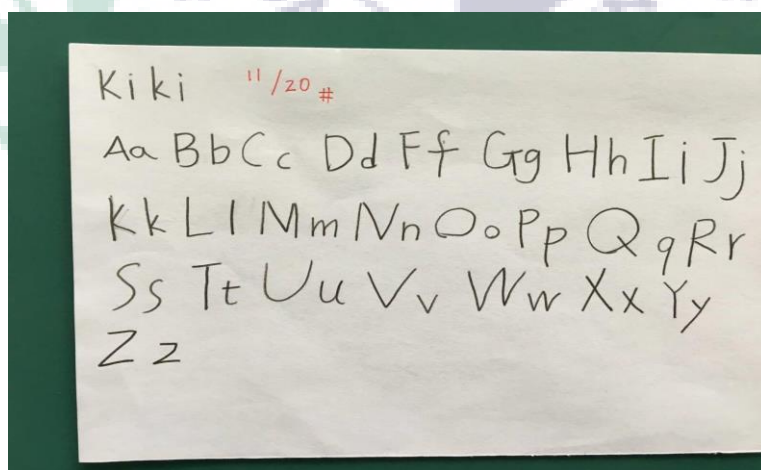 Kiki 11/20 #
Aa Bb Cc Dd Ff Gg Hh Ii Jj
Kk Ll Mm Nn Oo Pp Qq Rr
Ss Tt Uu Vv Ww Xx Yy
Zz